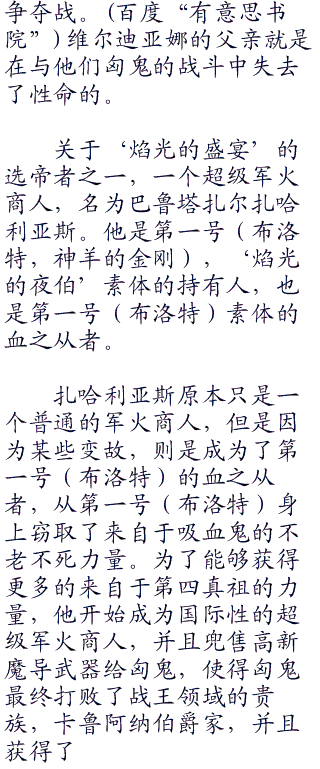 争夺战。(百度“有意思书
院”)维尔迪亚娜的父亲就是
在与他们匈鬼的战斗中失去
了性命的。
关于‘焰光的盛宴’的
选帝者之一，一个超级军火
商人，名为巴鲁塔扎尔扎哈
利亚斯。他是第一号（布洛
特，神羊的金刚），‘焰光
的夜伯’素体的持有人，也
是第一号（布洛特）素体的
血之从者。
扎哈利亚斯原本只是一
个普通的军火商人，但是因
为某些变故，则是成为了第
一号（布洛特）的血之从
者，从第一号（布洛特）身
上窃取了来自于吸血鬼的不
老不死力量。为了能够获得
更多的来自于第四真祖的力
量，他开始成为国际性的超
级军火商人，并且兜售高新
魔导武器给匈鬼，使得匈鬼
最终打败了战王领域的贵
族，卡鲁阿纳伯爵家，并且
获得了